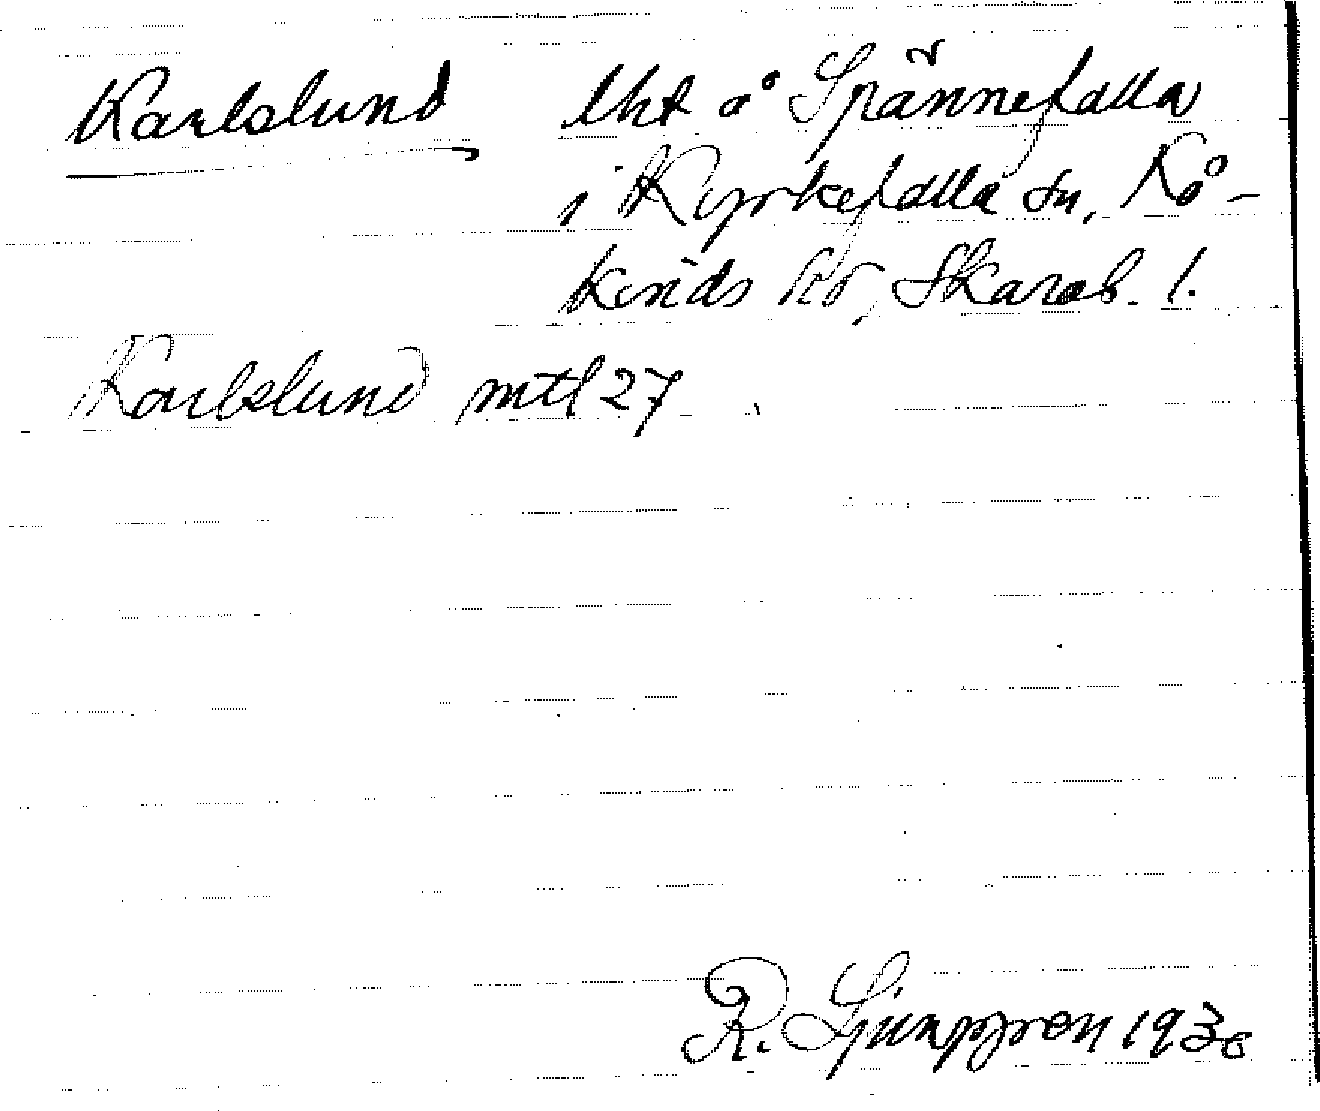 Karlslund lht å Spännefalla
i Kyrkefalla sn, Kå-
kinds hd, Skarab. l.
Karlslund mtl 27
R. Ljunggren 1930